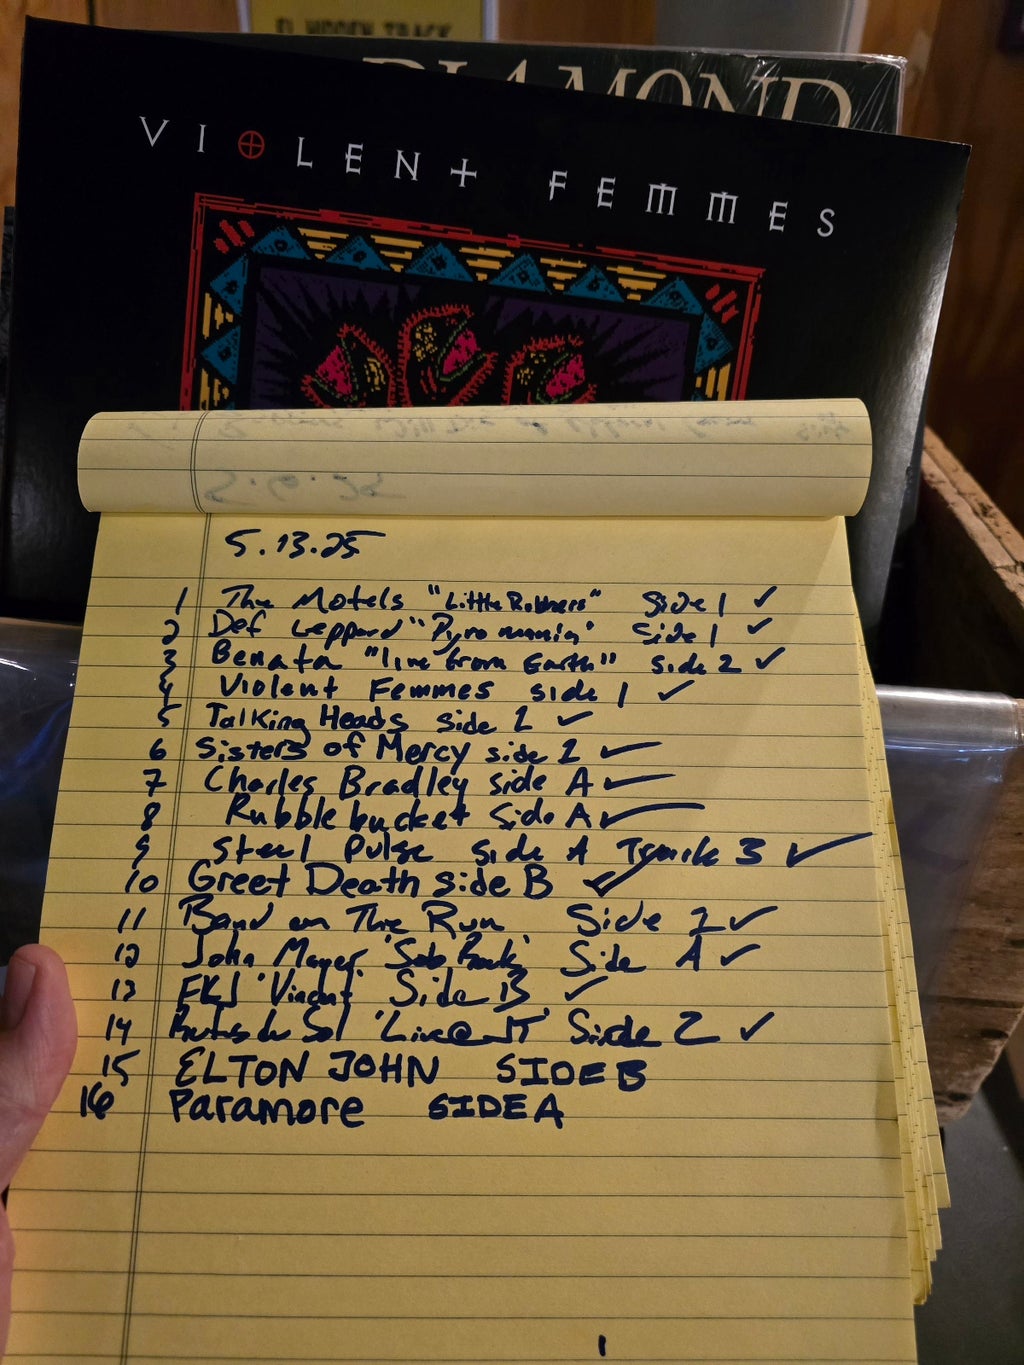 EL HIDDEN TRACK
DIAMOND
VIOLENT FEMMES
5.6.25
5.13.25
1 The Motels "Little Robbers" Side 1 ✓
2 Def Leppard "Pyromania" Side 1 ✓
3 Benata "live from Earth" side 2 ✓
4 Violent Femmes side 1 ✓
5 Talking Heads side 2 ✓
6 Sisters of Mercy side 2 ✓
7 Charles Bradley side A ✓
8 Rubblebucket Side A ✓
9 Steel Pulse side A Track 3 ✓
10 Greet Death side B ✓
11 Band on The Run Side 2 ✓
12 John Mayer 'Sob Rock' Side A ✓
13 FKJ 'Vincent' Side B ✓
14 Sol 'Live@JT' Side 2 ✓
15 ELTON JOHN SIDE B
16 Paramore SIDE A